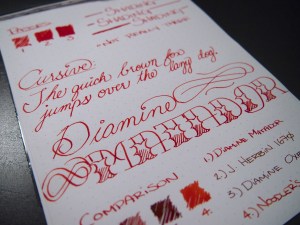 Passes
SHADING
SHADING
SHADING
1 2 3
Cursive:
The quick brown fox
jumps over the lazy dog.
Diamine
MATADOR
COMPARISON
1) DIAMINE MATADOR
2) J. HERBIN 1670
3) DIAMINE
4) NOODLER'S
4.